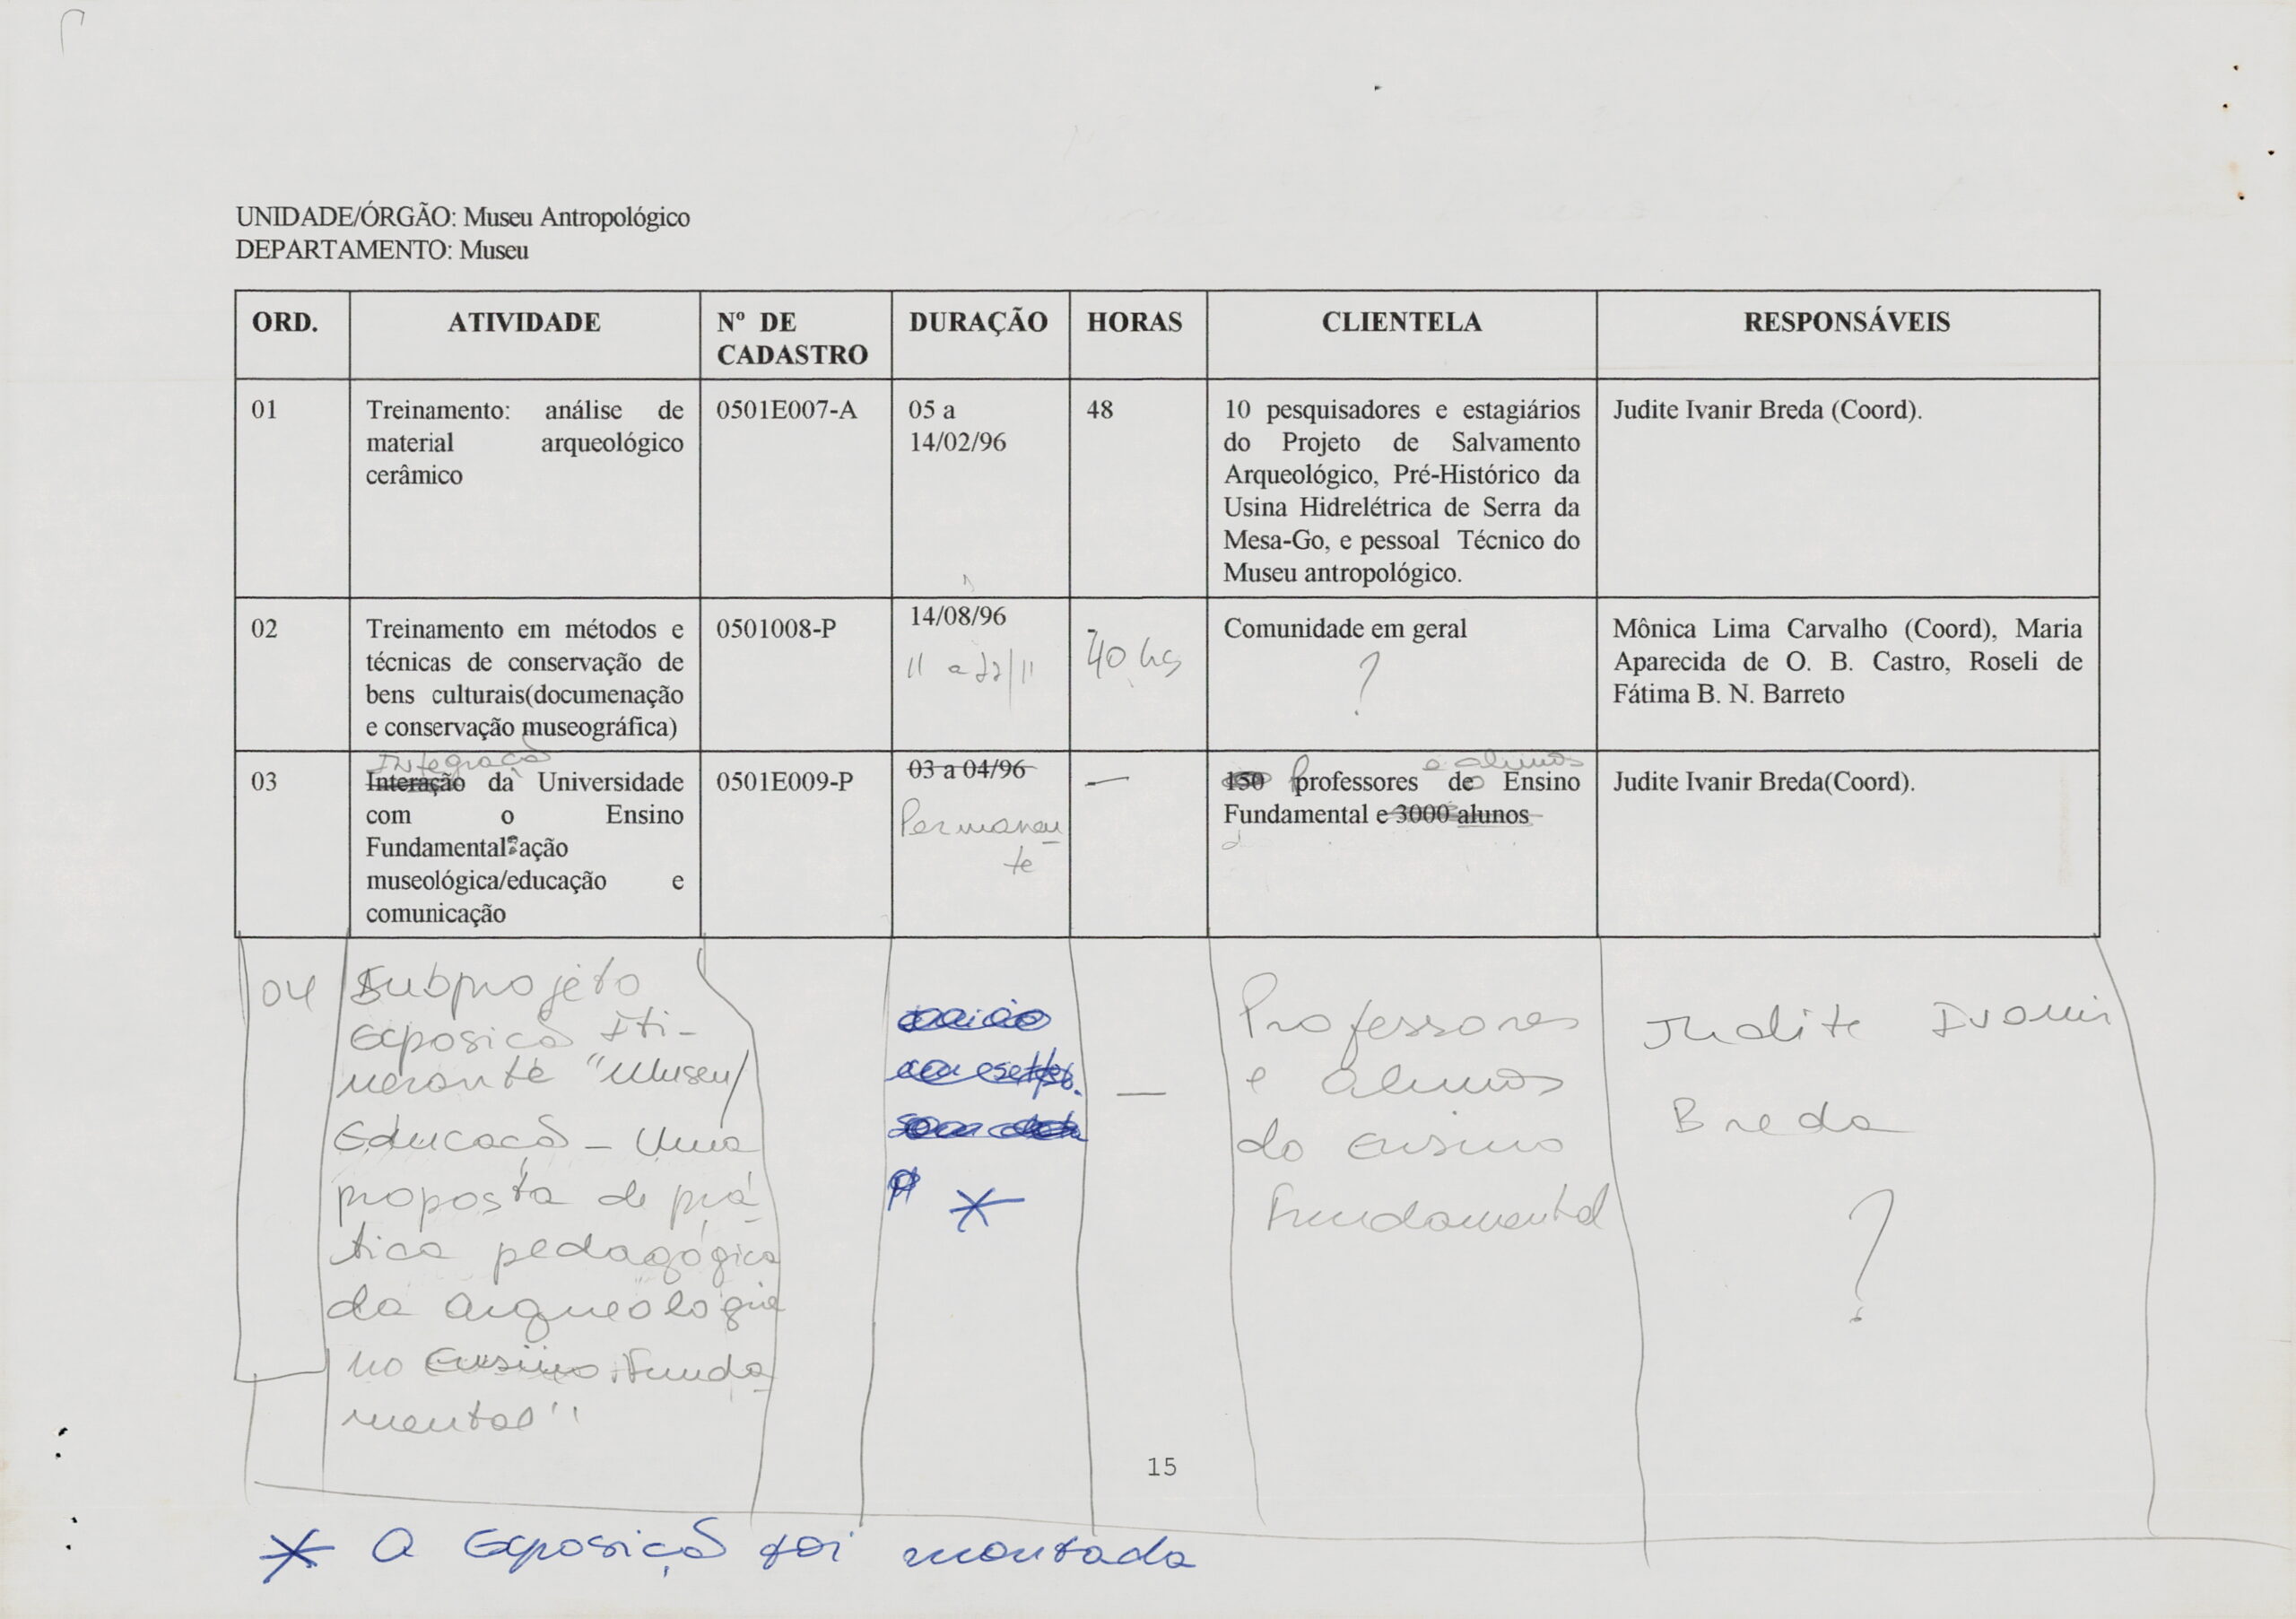 UNIDADE/ÓRGÃO: Museu Antropológico
DEPARTAMENTO: Museu
ORD.
ATIVIDADE
Nº DE
CADASTRO
DURAÇÃO
HORAS
CLIENTELA
RESPONSÁVEIS
01
Treinamento: análise de
material arqueológico
cerâmico
0501E007-A
05 a
14/02/96
48
10 pesquisadores e estagiários
do Projeto de Salvamento
Arqueológico, Pré-Histórico da
Usina Hidrelétrica de Serra da
Mesa-Go, e pessoal Técnico do
Museu antropológico.
Judite Ivanir Breda (Coord).
02
Treinamento em métodos e
técnicas de conservação de
bens culturais(documenação
e conservação museográfica)
0501008-P
14/08/96
11 a 22/11
40 hs
Comunidade em geral
?
Mônica Lima Carvalho (Coord), Maria
Aparecida de O. B. Castro, Roseli de
Fátima B. N. Barreto
03
Integração
Interação da Universidade
com o Ensino
Fundamental: ação
museológica/educação e
comunicação
0501E009-P
03 a 04/96
Permanen
te
—
e alunos
150 Professores do Ensino
Fundamental e 3000 alunos
Judite Ivanir Breda(Coord).
04
Subprojeto
Exposição Iti-
nerante "Museu/
Educação - Uma
proposta de prá-
tica pedagógica
da arqueologia
no Ensino Funda-
mental"
*
—
Professores
e alunos
do Ensino
Fundamental
Judite Ivanir
Breda
?
15
* A Exposição foi montada